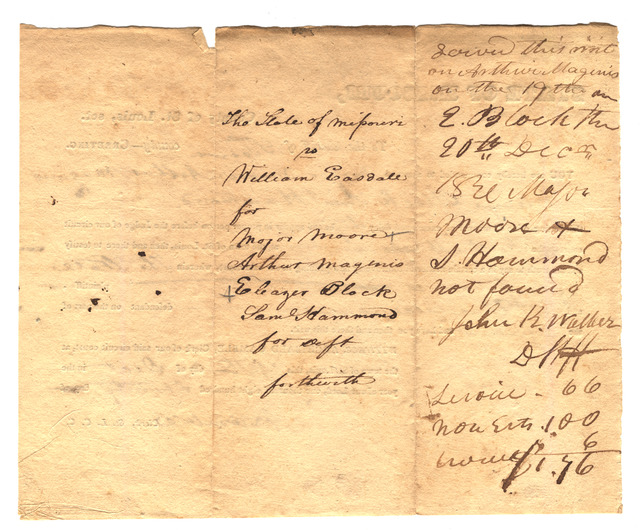 The State of Missouri
vs
William Easdale
for
Major Moore +
Arthur Magenis
+ Eleazer Block
Saml Hammond
for Deft
forthwith
Served this writ
on Arthur Magenis
on the 19th on
E. Block the
20th Decr
Major
Moore +
S. Hammond
not found
John K. Walker
D Shff
Service - 66
Non Ests. 1.00
6
$1.76